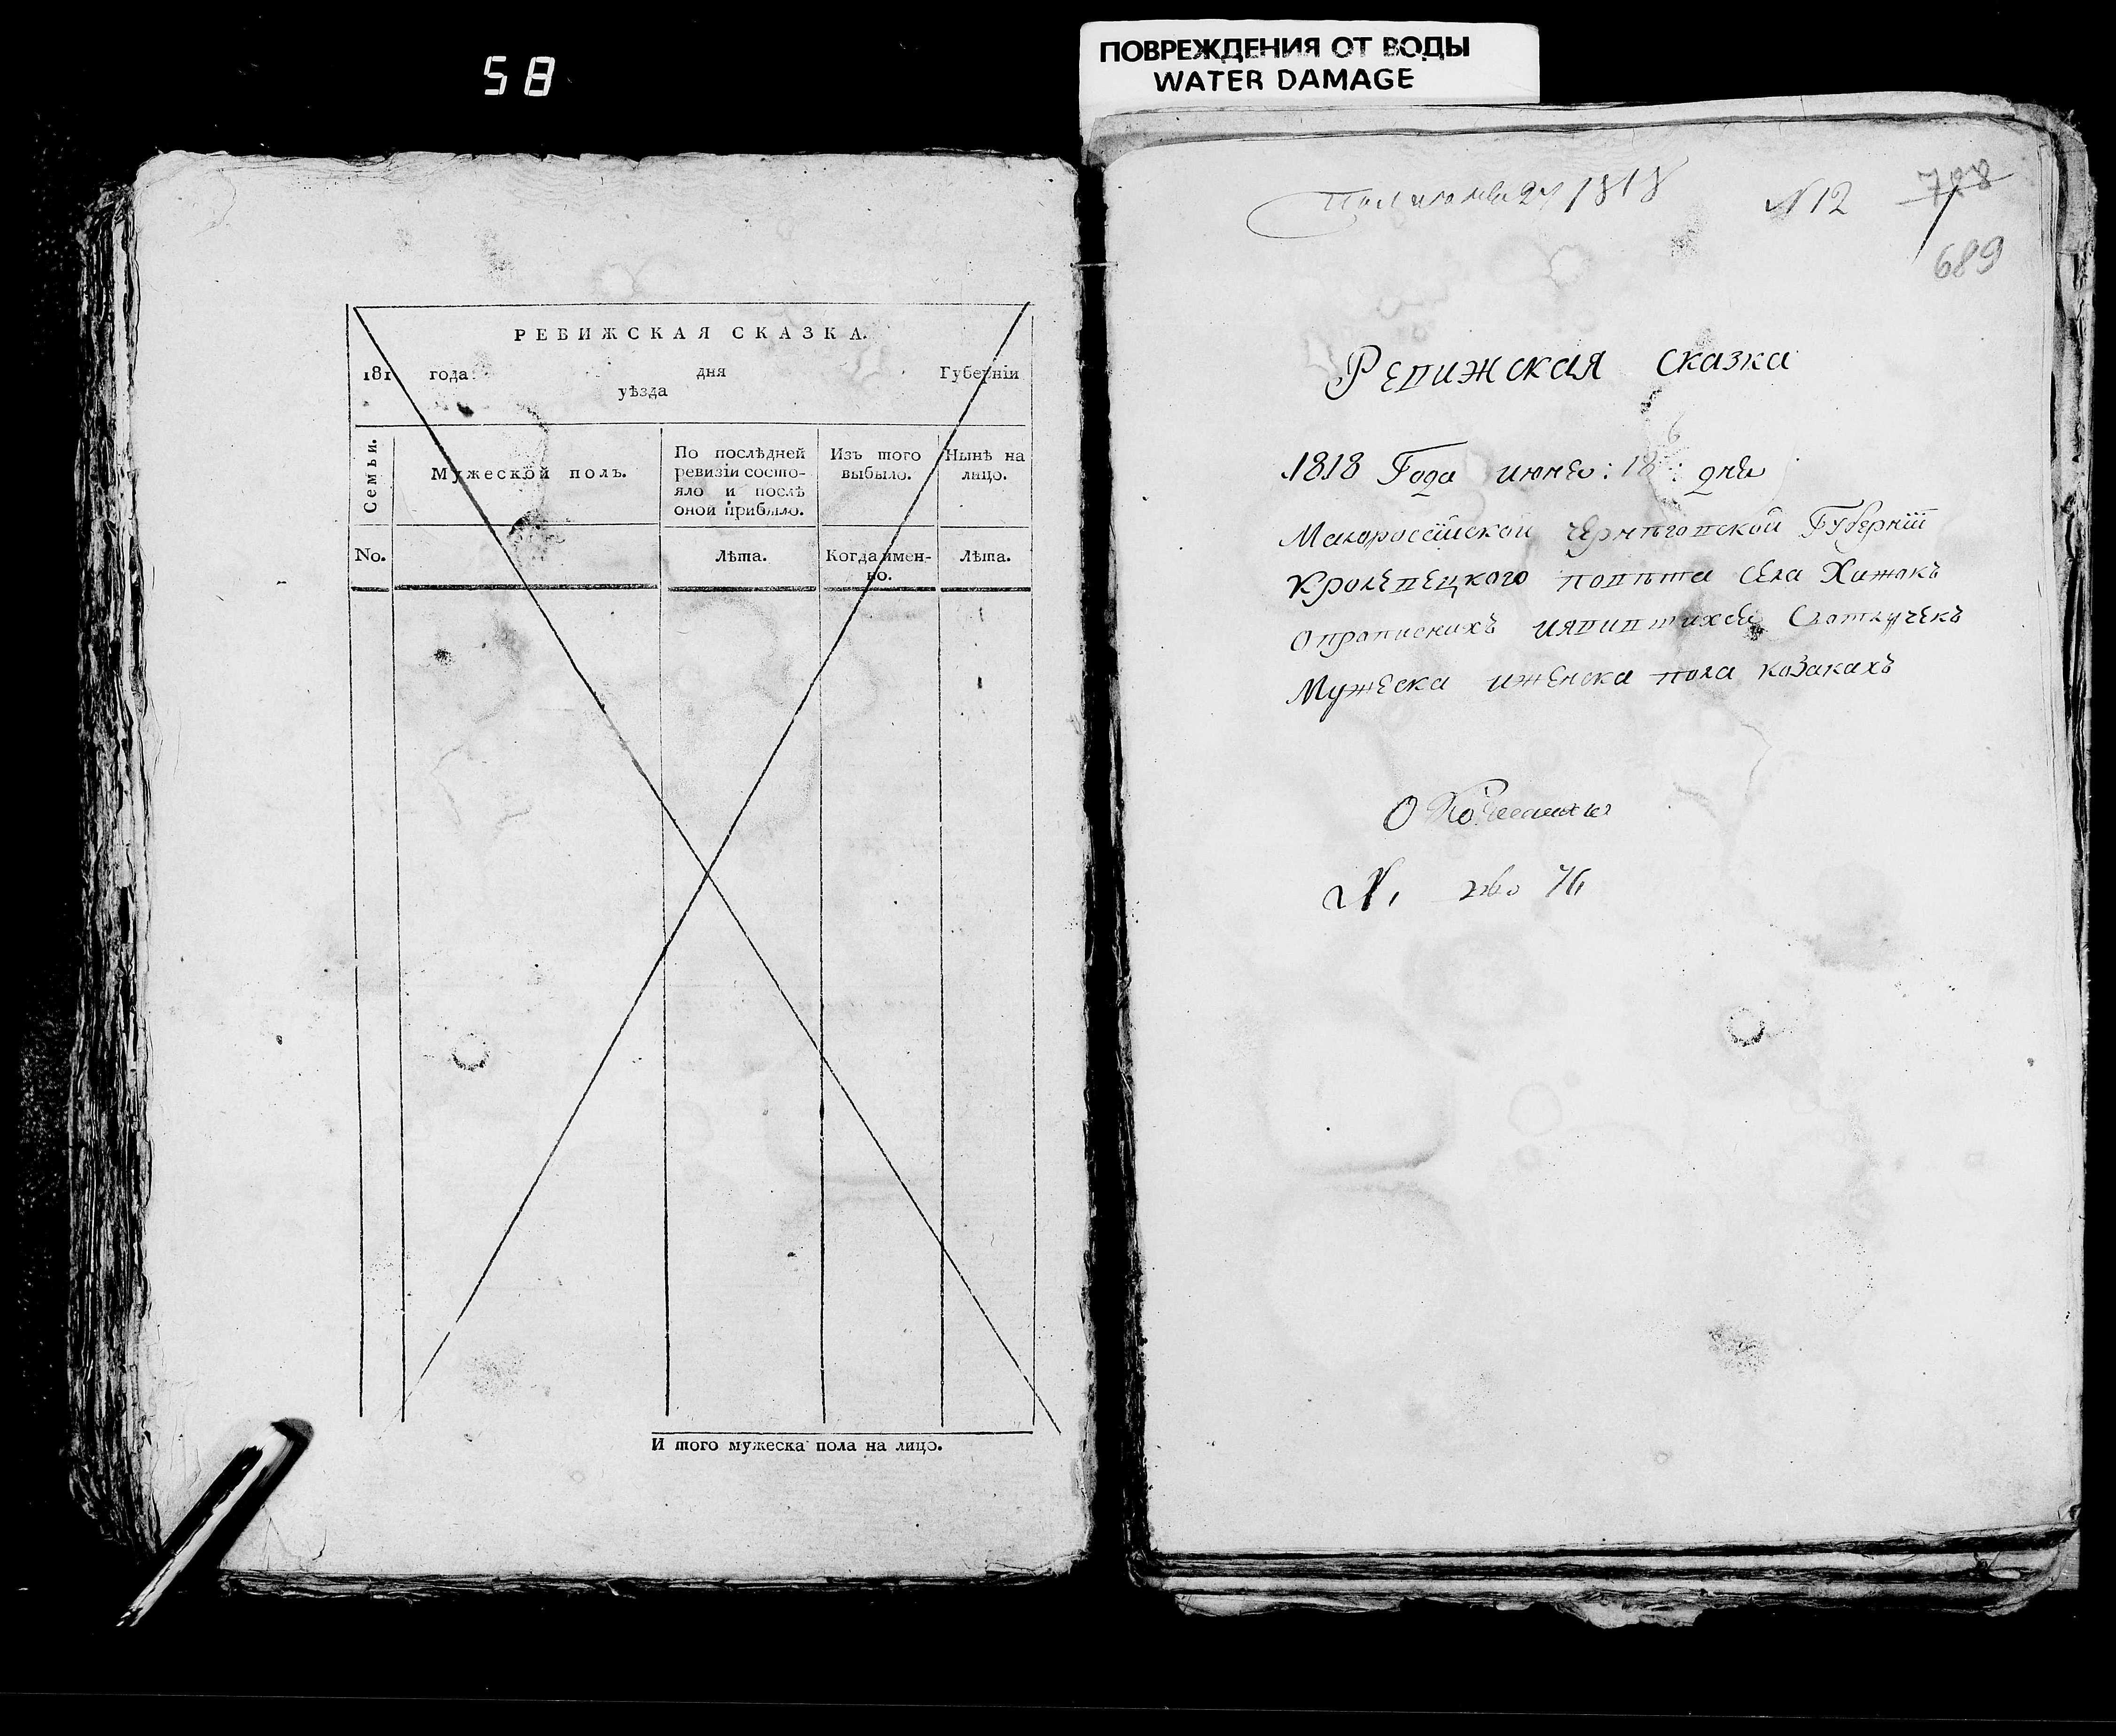 58
ПОВРЕЖДЕНИЯ ОТ ВОДЫ
WATER DAMAGE
РЕВИЖСКАЯ СКАЗКА.
181 года дня Губерніи
уѣзда
Семьи.
Мужеской полъ.
По послѣдней
ревизіи состо-
яло и послѣ
оной прибыло.
Изъ того
выбыло.
Нынѣ на
лицо.
No.
Лѣта.
Когда имен-
но.
Лѣта.
И того мужеска пола на лицо.
27 1818 N 12 728
689
Ревижская сказка
1818 Года июня: 18: дня
Малороссійской Черниговской Губерніи
Кролевецкого повѣта села Хижокъ
О прописнихъ иявившихся
Мужеска иженска пола козакахъ
О
N,